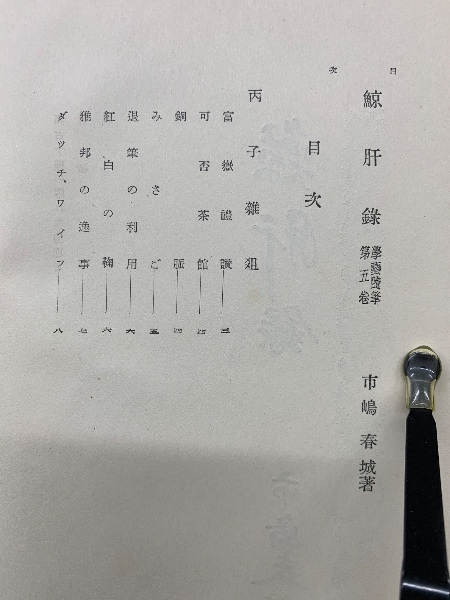 目次
鯨肝錄 學藝隨筆第五卷 市嶋春城著
目次
丙子雜俎
富嶽禮讚――三
可否茶館――四
銅脈――四
みさご――五
退筆の利用――六
紅白の梅――六
雅邦の逸事――七
ダッチ、ワイフ――八